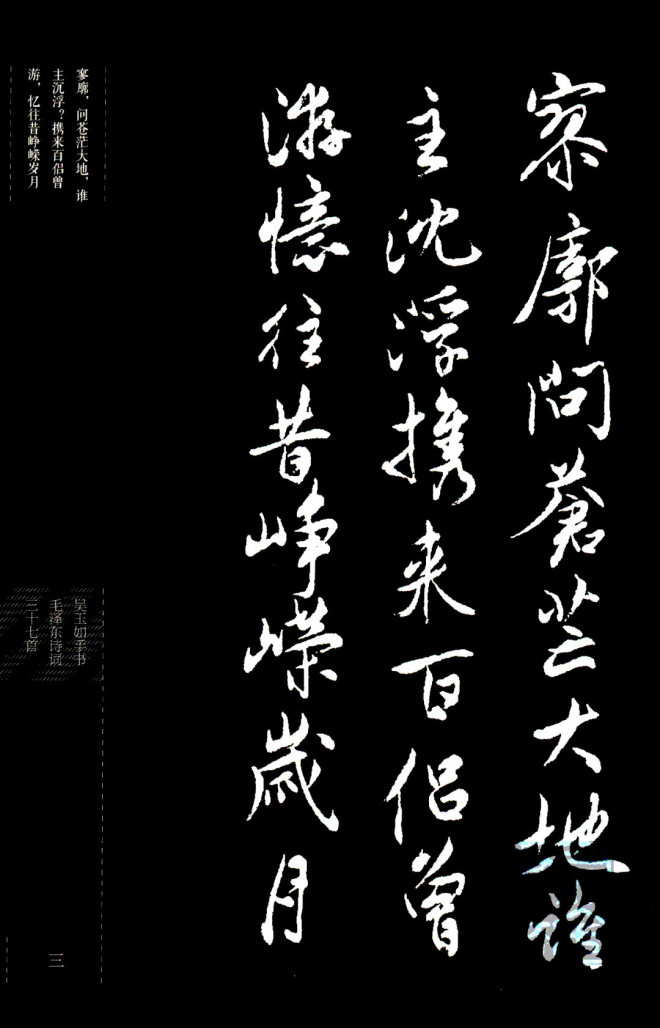 寥廓問蒼茫大地誰
主沈浮攜来百侣曾
游憶往昔崢嶸歲月
寥廓，问苍茫大地，谁
主沉浮？携来百侣曾
游，忆往昔峥嵘岁月
吴玉如手书
毛泽东诗词
三十七首
三